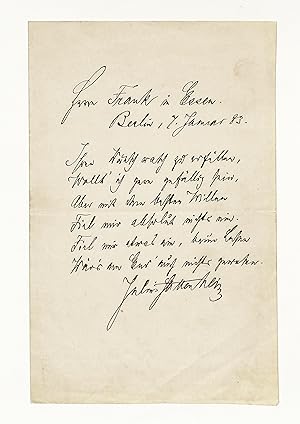 Herrn Frank in Essen.
Berlin, 7. Januar 83.
Ihren Wunsch rasch zu erfüllen,
Wollt' ich gern gefällig sein,
Aber mit dem besten Willen
Fiel mir absolut nichts ein.
Fiel mir etwas ein, beim
Wär's von nichts gewesen.
Julius Stettenheim